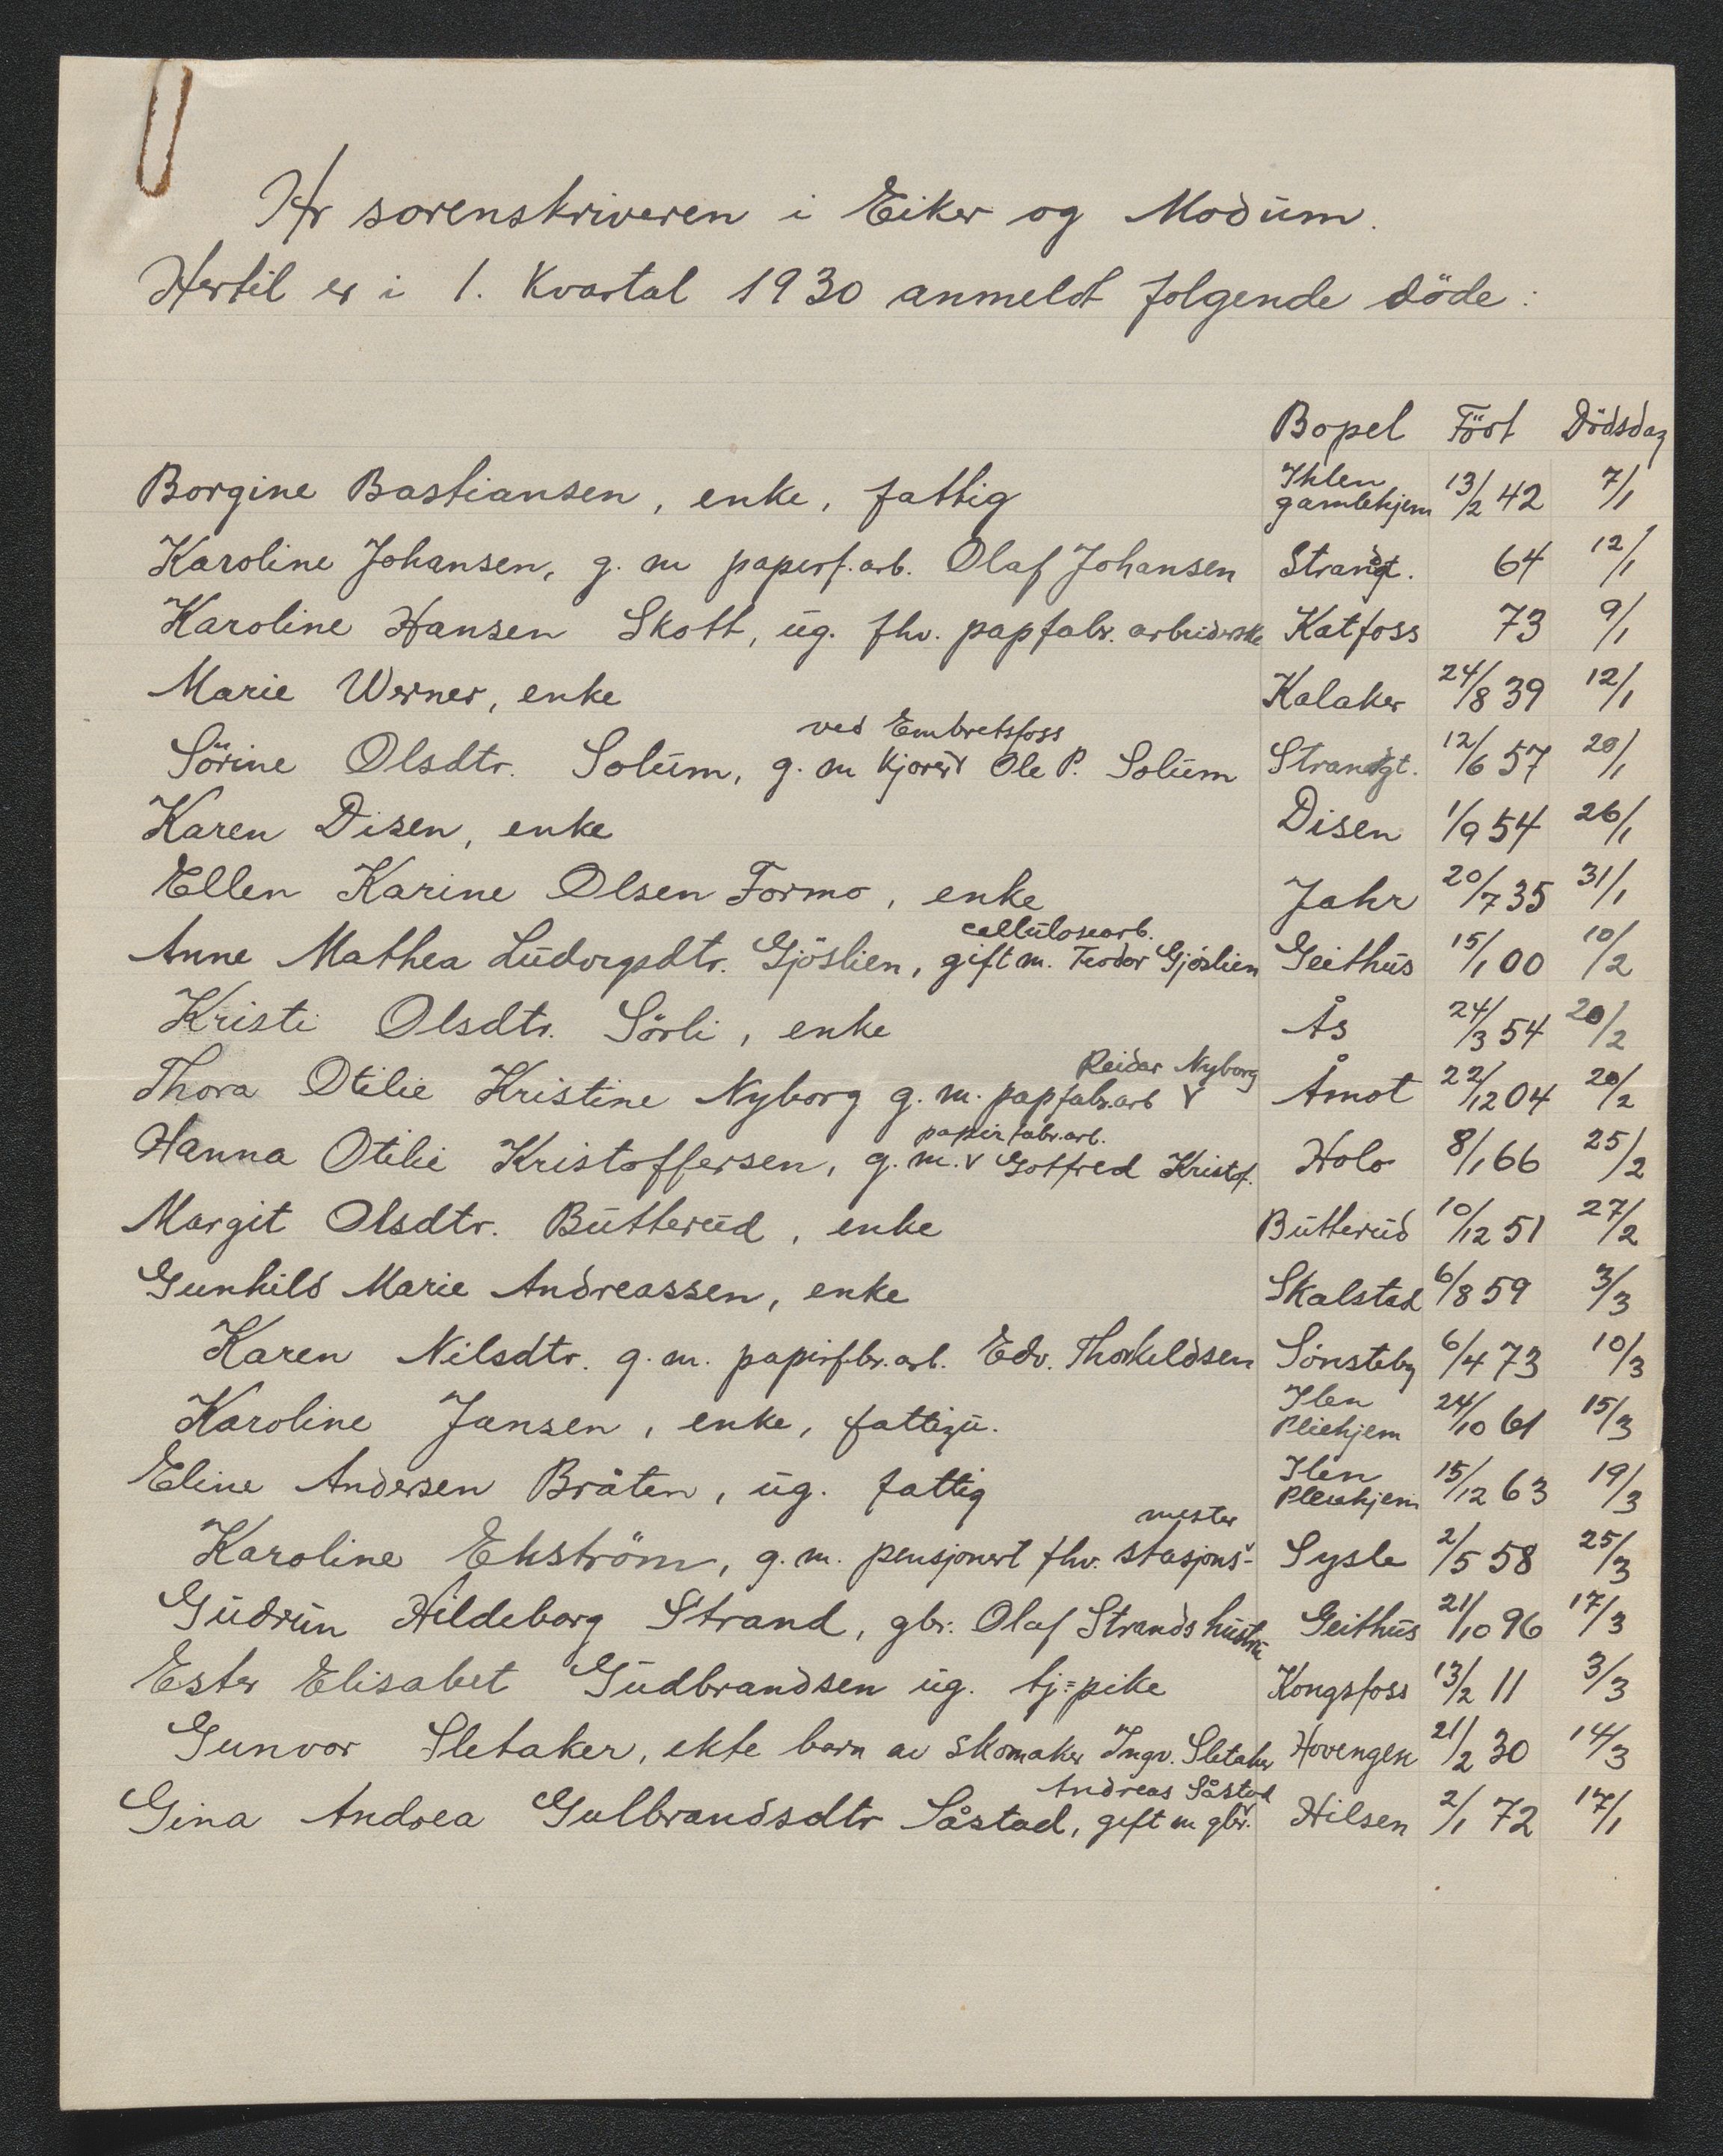 Hr sorenskriveren i Eiker og Modum.
Hertil er i 1. Kvartal 1930 anmeldt folgende döde:
Bopel Född Dödsdag
Borgine Bastiansen, enke, fattig Ihlen gamlehjem 13/2 42 7/1
Karoline Johansen, g. m paperf.arb. Olaf Johansen Strandgt. 64 12/1
Karoline Hansen Skott, ug. fhv. papfabr. arbeiderske Katfoss 73 9/1
Marie Werner, enke Kalaker 24/8 39 12/1
Sörine Olsdtr. Solum, g. m kjorer ved Embretsfoss Ole P. Solum Strandgt. 12/6 57 20/1
Karen Disen, enke Disen 1/9 54 26/1
Ellen Karine Olsen Formo, enke Jahr 20/7 35 31/1
Anne Mathea Ludvigsdtr. Gjöslien, gift m. cellulosearb. Teodor Gjöslien Geithus 15/1 00 10/2
Kristi Olsdtr. Sörli, enke Ås 24/3 54 20/2
Thora Otilie Kristine Nyborg g. m. papfabr.arb Reidar Nyborg Åmot 22/12 04 20/2
Hanna Otilie Kristoffersen, g. m. papirfabr.arb. Gotfred Kristof. Holo 8/1 66 25/2
Margit Olsdtr. Butterud, enke Butterud 10/12 51 27/2
Gunhild Marie Andreassen, enke Skalstad 6/8 59 3/3
Karen Nilsdtr. g. m. papirfbr.arb. Edv. Thorkeldsen Sönsteby 6/4 73 10/3
Karoline Jansen, enke, fattigu. Ilen Pleiehjem 24/10 61 15/3
Eline Andersen Bråten, ug. fattig Ilen Pleiehjem 15/12 63 19/3
Karoline Ekström, g. m. pensjonert fhv. stasjons-mester Sysle 2/5 58 25/3
Gudrun Hildeborg Strand, gbr. Olaf Strands hustru Geithus 21/10 96 17/3
Ester Elisabet Gudbrandsen ug. tj=pike Kongsfoss 13/2 11 3/3
Gunvor Sletaker, ekte barn av skomaker Ingv. Sletaker Hovengen 21/2 30 14/3
Gina Andrea Gulbrandsdtr Såstad, gift m gbr. Andreas Såstad Hilsen 2/1 72 17/1